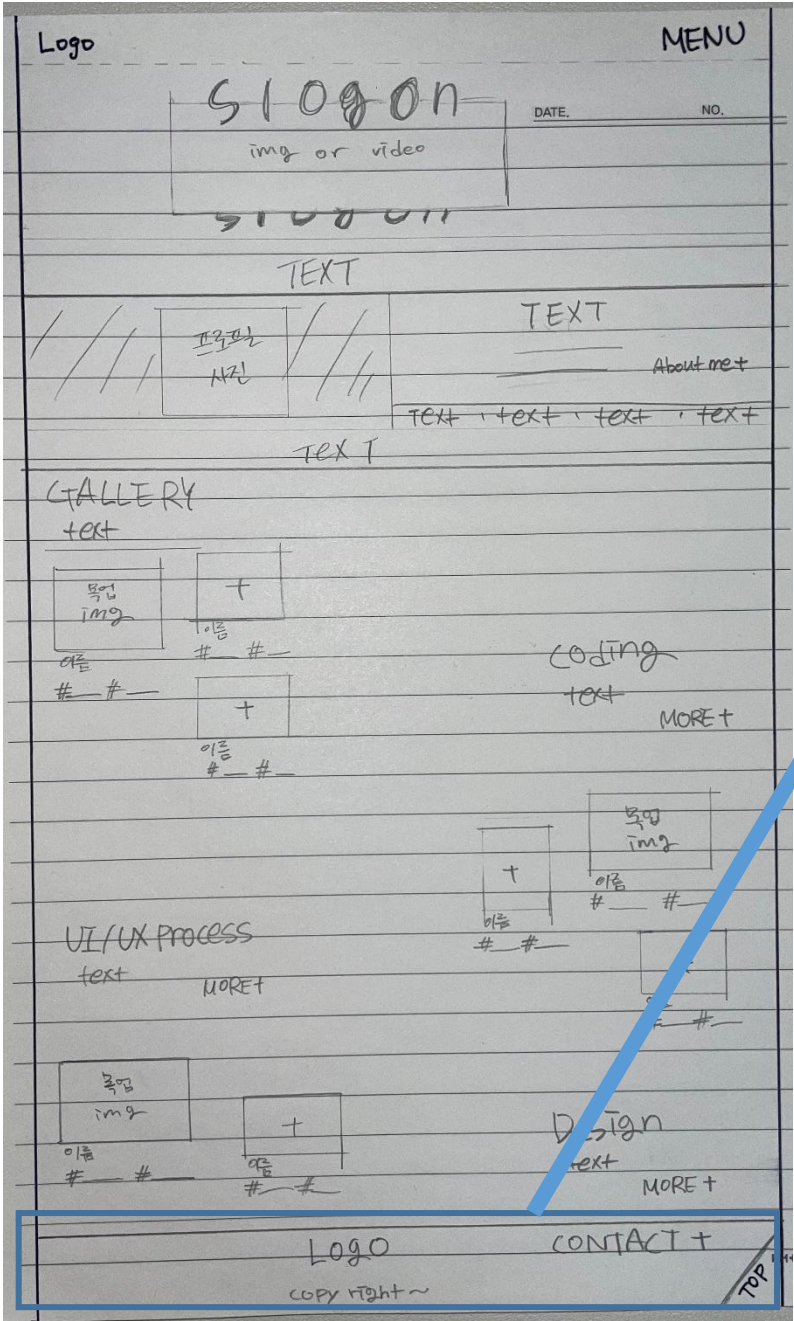 Logo
MENU
Slogan
DATE.
NO.
img or video
TEXT
프로필
사진
TEXT
About me +
Text · text · text · text
TEXT
GALLERY
text
목업
img
+
이름
#__ #__
이름
#__ #__
+
이름
#__ #__
coding
text
MORE +
목업
img
+
이름
#__ #__
이름
#__ #__
UI/UX PROCESS
text
MORE +
#__
목업
img
+
이름
#__ #__
이름
#__ #__
Design
text
MORE +
LOGO
CONTACT +
copy right~
TOP